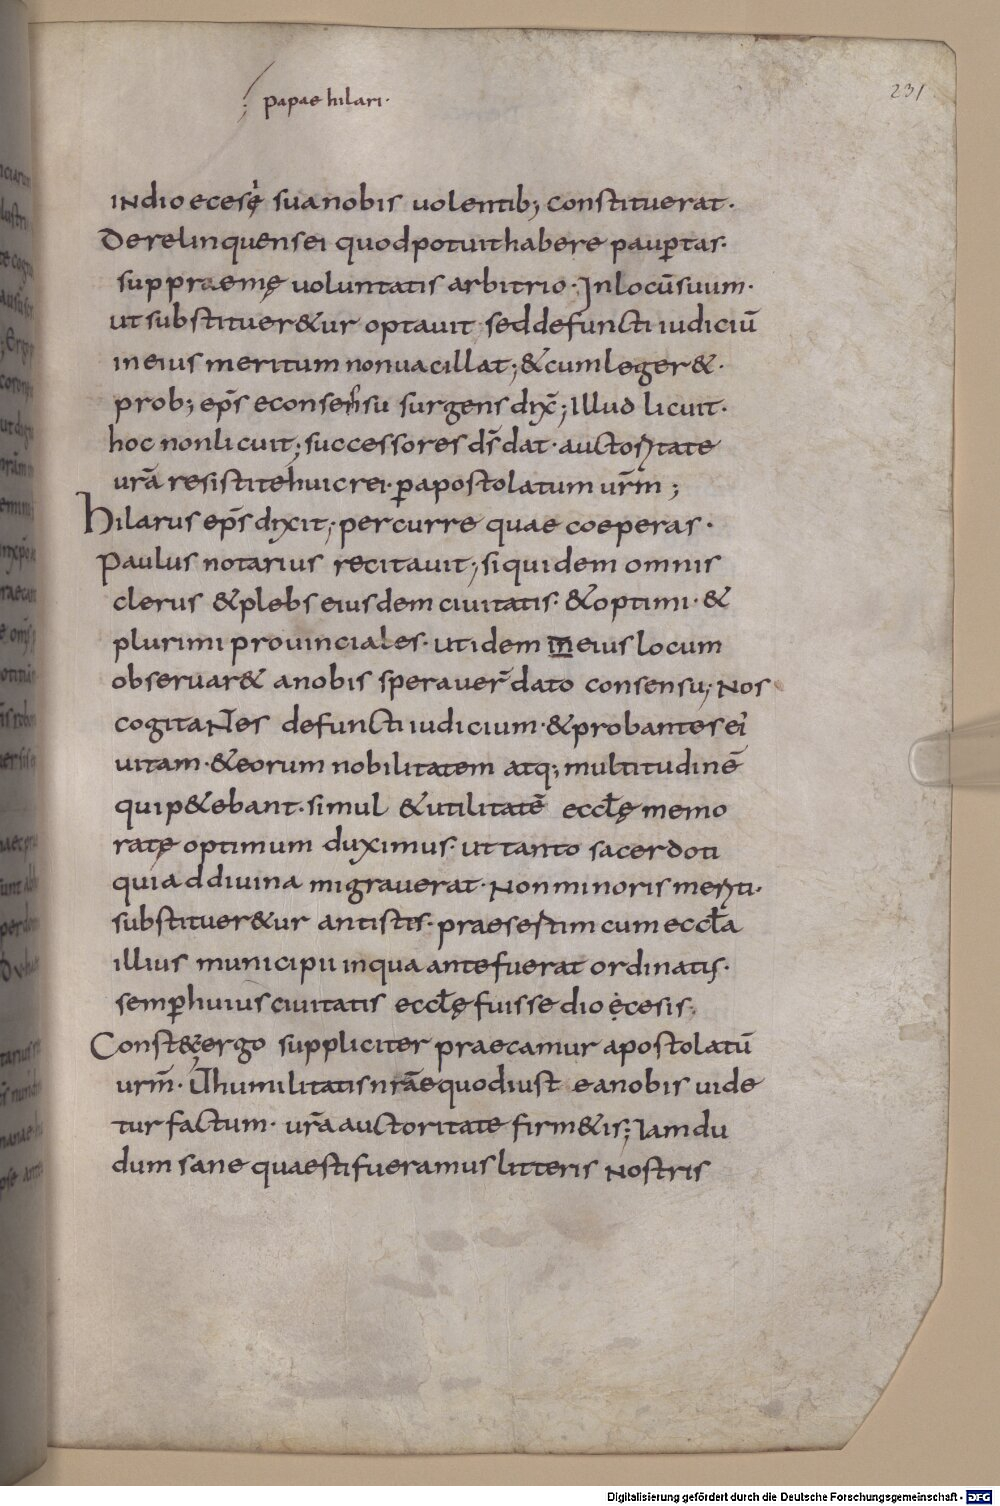 ; papae hilari·
231
indioecesę suanobis uolentib; constituerat·
Derelinquensei quodpotuithabere paup̄tas·
suppraemę uoluntatis arbitrio· Inlocūsuum·
utsubstituer&ur optauit seddefuncti iudiciū
ineius meritum nonuacillat; &cumleger&·
prob; ep̄s econsensu surgens dix̄; Illud licuit·
hoc nonlicuit; successores ds̄ dat· auctoritate
ur̄a resistitehuicrei· p̄apostolatum ur̄m;
hilarus ep̄s dixit; percurre quae coeperas·
Paulus notarius recitauit; siquidem omnis
clerus &plebs eiusdem ciuitatis· &optimi· &
plurimi prouinciales· utidem in eius locum
obseruar& anobis sperauer̄ dato consensu; Nos
cogitantes defuncti iudicium· &probantes ei
uitam· &eorum nobilitatem atq; multitudinē
quip&ebant· simul &utilitatē eccłę memo
ratę optimum duximus· ut tanto sacerdoti
quiaddiuina migrauerat· Nonminoris meriti·
substituer&ur antistis· praesertim cum eccła
illius municipii inqua antefuerat ordinatis·
semp̄huius ciuitatis eccłę fuisse dioecesis;
Const& ergo suppliciter praecamur apostolatū
urm̄· Uthumilitatis nr̄ae quodiust eanobis uide
tur factum· ur̄a auctoritate firm&is; Iamdu
dum sane quaestifueramus litteris Nostris
Digitalisierung gefördert durch die Deutsche Forschungsgemeinschaft - DFG